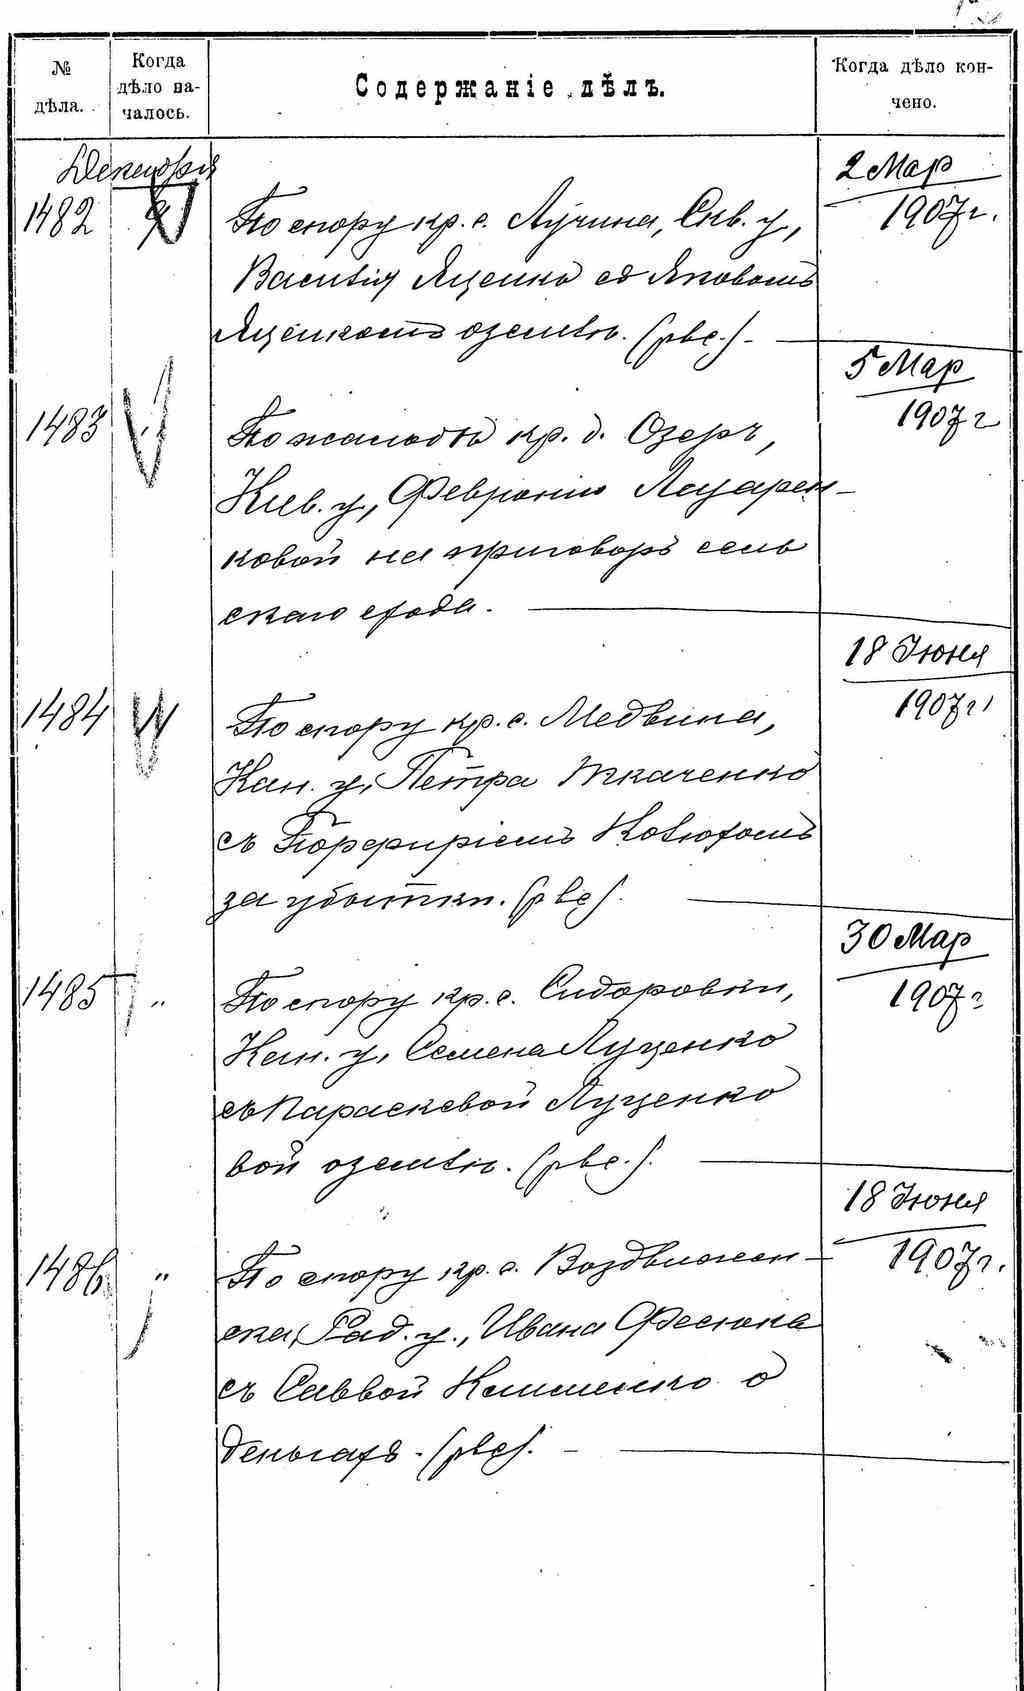 № дѣла.
Когда дѣло началось.
Содержаніе дѣлъ.
Когда дѣло кончено.
Декабря
2 Мар
1482
9
По спору кр. с. Лучина, Скв. у,
1907 г.
Василія Яценко съ Яковомъ
Яценкомъ о землѣ. (рвс.). -
5 Мар
1483
По жалобѣ кр. д. Озеръ,
1907 г
Кіев. у, Февроніи Лазарен-
ковой на приговоръ сель
скаго схода.
18 Іюня
1484
По спору кр. с. Медвина,
1907 г.
Кан. у, Петра Ткаченко
съ Порфиріемъ
за убытки. (рвс).
30 Мар
1485
"
По спору кр. с. Сидоровки,
1907 г
Кан. у, Семена Луценко
съ Параскевой Луценко
вой о землѣ. (рвс.).
18 Іюня
1486
"
По спору кр. с. Воздвижен-
1907 г.
ска, Рад. у., Ивана Фесюка
съ Саввой Клименко о
деньгахъ. (рвс). -